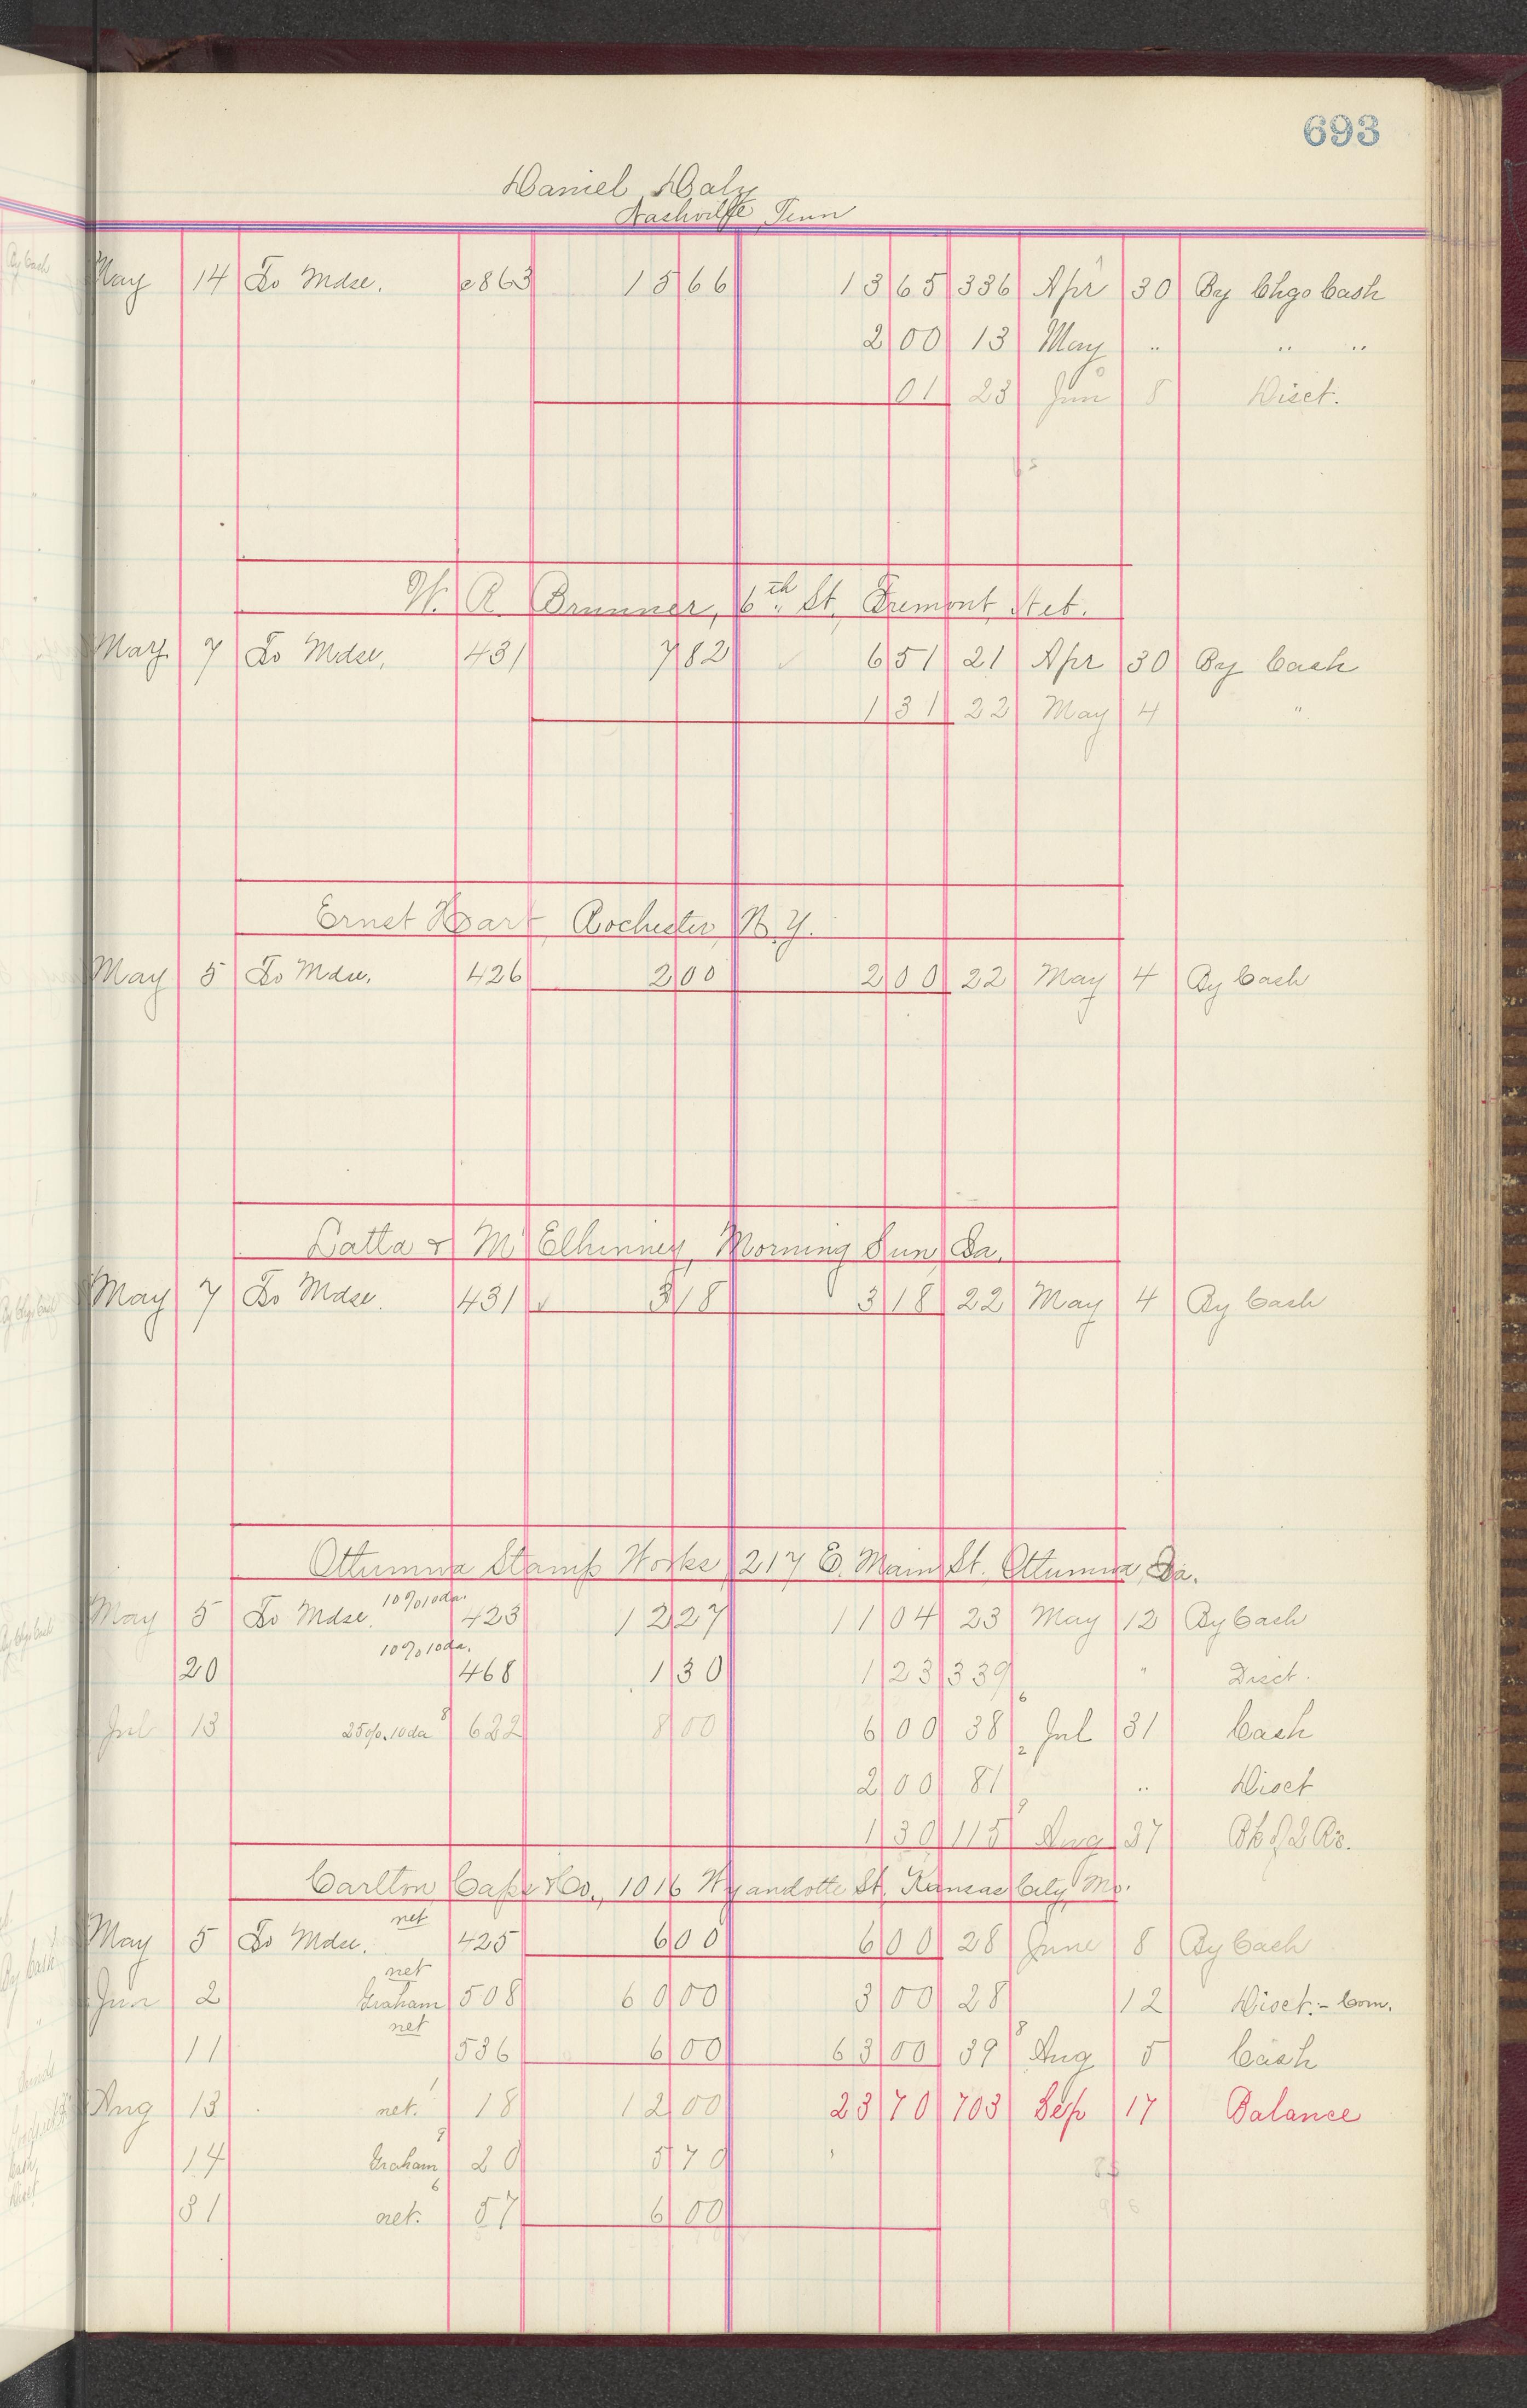 693
Daniel Daly
Nashville Tenn
May 14 To Mdse. e863 15 66 13 65 336 Apr 30 By Chgo Cash
2 00 13 May " " "
01 23 Jun 8 Disct.
W. R. Brunner, 6th St, Fremont, Neb.
May 7 To Mdse. 431 7 82 ✓ 6 51 21 Apr 30 By Cash
1 31 22 May 4 "
Ernst Hart Rochester N.Y.
May 5 To Mdse. 426 2 00 2 00 22 May 4 By Cash
Latta & McElhinney, Morning Sun, Ia.
May 7 To Mdse. 431 ✓ 3 18 3 18 22 May 4 By Cash
Ottumwa Stamp Works 217 E. Main St. Ottumwa, Ia.
May 5 To Mdse. 10% 10 da. 423 12 27 11 04 23 May 12 By Cash
20 10% 10 da. 468 1 30 1 23 339 " Disct.
Jul 13 25%. 10 da 8 622 8 00 6 00 38 6 Jul 31 Cash
2 00 81 2 " Disct
1 30 115 9 Aug 27
Carlton Caps & Co., 1016 Wyandotte St, Kansas City Mo.
May 5 To Mdse. net 425 6 00 6 00 28 June 8 By Cash
Jun 2 net Graham 508 60 00 3 00 28 12 Disct. - Com.
11 net 536 6 00 63 00 39 8 Aug 5 Cash
Aug 13 net. 1 18 12 00 23 70 703 Sep 17 Balance
14 Graham 9 20 5 70
31 net. 6 57 6 00